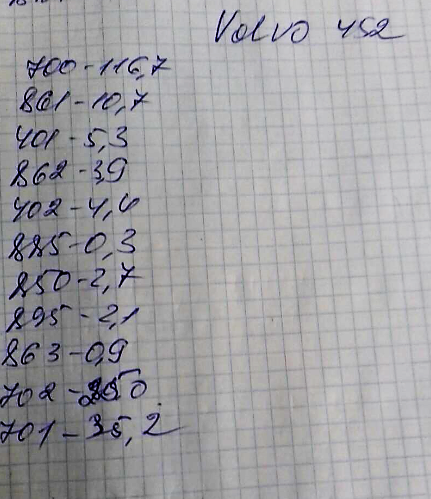 Volvo 452
700-116,7
861-10,7
401-5,3
862-3,9
402-4,4
885-0,3
850-2,7
895-2,1
863-0,9
702-
701-35,2